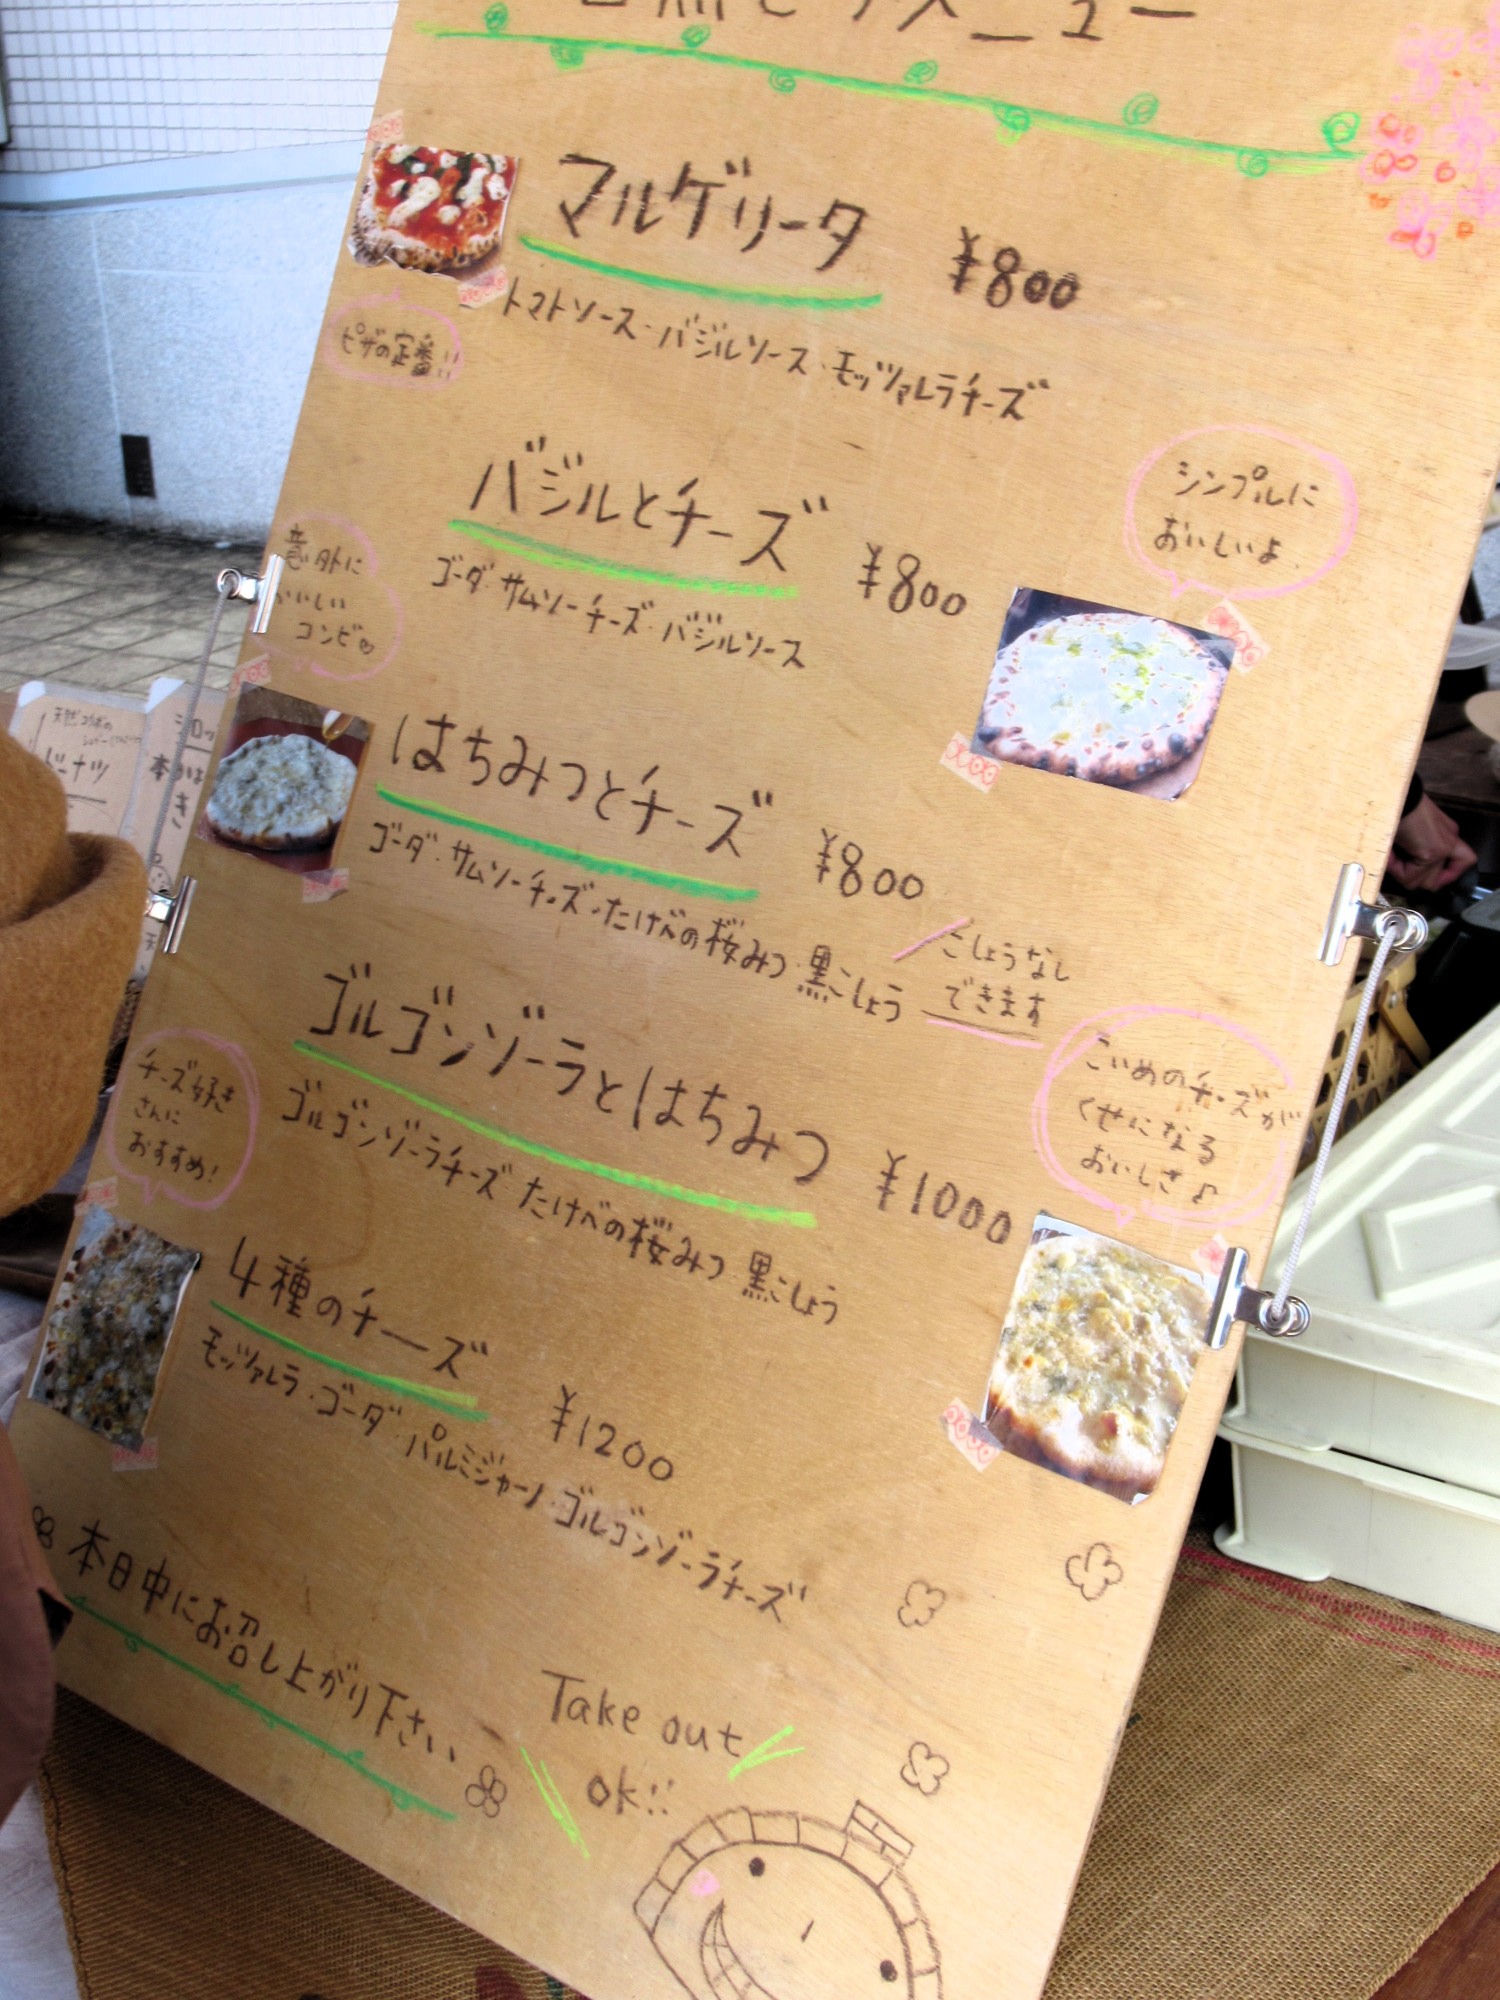 メニュー
マルゲリータ ¥800
トマトソース・バジルソース・モッツァレラチーズ
ピザの定番!!
バジルとチーズ ¥800
ゴーダ・サムソーチーズ・バジルソース
シンプルに
おいしいよ
意外に
いしい
コンビ
はちみつとチーズ ¥800
ゴーダ・サムソーチーズ・たけべの桜みつ・黒こしょう
こしょうなし
できます
ゴルゴンゾーラとはちみつ ¥1000
ゴルゴンゾーラチーズ たけべの桜みつ 黒こしょう
こいめのチーズが
くせになる
おいしさ♪
チーズ好き
さんに
おすすめ!
4種のチーズ ¥1200
モッツァレラ・ゴーダ・パルミジャーノ・ゴルゴンゾーラチーズ
本日中にお召し上がり下さい
Take out
ok!!
ドーナツ